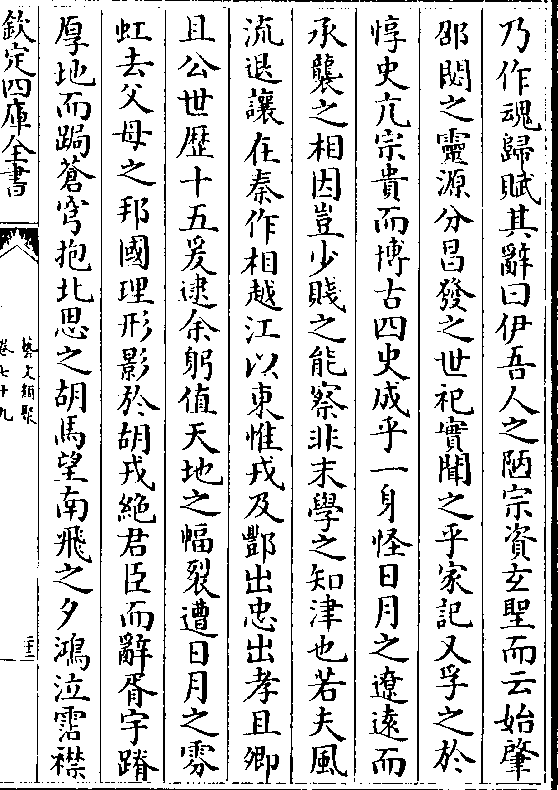 乃作魂歸賦其辭曰伊吾人之陋宗資玄聖而云始肇
邵閎之靈源分昌發之世祀實聞之乎家記又孚之於
惇史亢宗貴而博古四史成乎一身怪日月之遼遠而
承襲之相因豈少賤之能察非末學之知津也若夫風
流退讓在秦作相越江以東惟戎及酆出忠出孝且卿
且公世歷十五爰逮余躬值天地之幅裂遭日月之雰
虹去父母之邦國理形影於胡戎絶君臣而辭胥宇蹐
厚地而跼蒼穹抱北思之胡馬望南飛之夕鴻泣霑襟
欽定四庫全書
藝文類聚
卷七十九
二十二